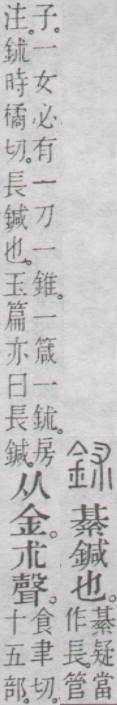 鉥 綦鍼也。綦疑當
作長管
子。一女必有一刀一錐。一箴一鉥。房
注。鉥時橘切。長鍼也。玉篇亦曰長鍼。
从金。朮聲。食聿切。
十五部。